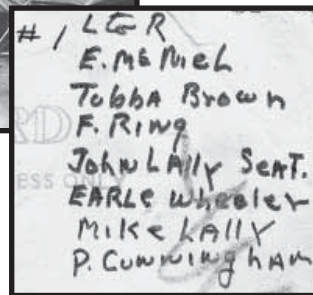 # 1 LGR
E. McNieL
TubbA Brown
F. RiNg
JohN LAlly SeAT.
EARLe wheeler
Mike LAllY
P. CuNNiNghAm
RD
ESS ONLY